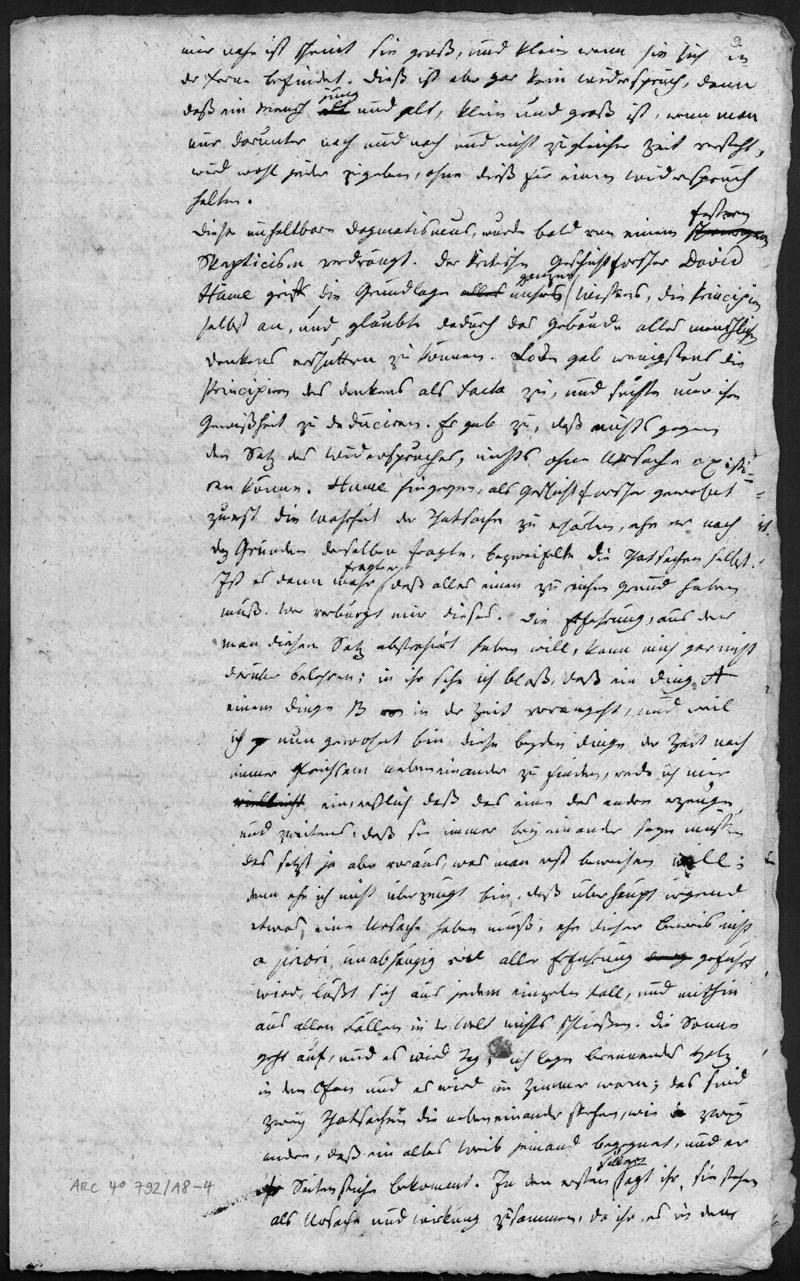 9
mir nahe ist scheint sie groß, und klein wenn sie sich in
der ferne befindet. Dieß ist aber gar kein widerspruch, denn
daß ein mensch jung und alt, klein und groß ist, wenn man
nur darunter nach und nach und nicht zugleicher Zeit versteht,
wird wohl jeder zugeben, ohne dieß für einen widerspruch
halten.
Dieser unhaltbare Dogmatismus, wurde bald von einem festern
Skepticism verdrängt. Der kritische Geschichtforscher David
Hume griff die Grundlage unsres ganzen Wissens, die Principien
selbst an, und glaubte dadurch das Gebäude alles menschlichen
Denkens erschüttern zu können. Locke gab wenigstens die
Principien des denkens als Facta zu, und suchte nur ihre
Gewißheit zu deduciren. Er gab zu, daß nichts gegen
den Satz des widerspruches, nichts ohne Ursache existi-
ren könne. Hume hingegen, als Geschichtforscher gewohnt
zuerst die Wahrheit der Thatsache zu erhärten, ehe er nach
den Gründen derselben fragte, bezweifelte die Thatsachen selbst.
Ist es denn wahr, fragte er, daß alles einen zureichen grund haben
muß. Wer verbürgt mir dieses. Die Erfahrung, aus der
man diesen Satz abstrahirt haben will, kann mich gar nicht
darüber belehren; in ihr sehe ich bloß, daß ein Ding A
einem dinge B in der Zeit vorangeht, und weil
ich nun gewohnt bin diese beyden dinge der Zeit nach
immer gleichsam nebeneinander zu finden, rede ich mir
ein, erstlich daß das eine das andere erzeuge,
und zweitens, daß sie immer bey einander seyn müssen
das setzt ja aber voraus, was man erst beweisen will;
denn ehe ich nicht überzeugt bin, daß überhaupt irgend
etwas, eine Ursache haben muß; ehe dieser beweis nicht
a priori, unabhängig von aller Erfahrung geführt
wird, läßt sich aus jedem einzeln fall, und mithin
aus allen Fällen in der Welt nichts schließen. Die Sonne
geht auf, und es wird Tag; ich lege brennendes Holz
in den Ofen und es wird im Zimmer warm; das sind
zwey Thatsachen die nebeneinander stehen, wie zwey
andere, daß ein altes Weib jemand begegnet, und er
Seitenstiche bekommt. In den ersten Fällen sagt ihr, sie stehen
als Ursache und wirkung zusammen, da ihr es in dem
ARC 4° 792/A8-4